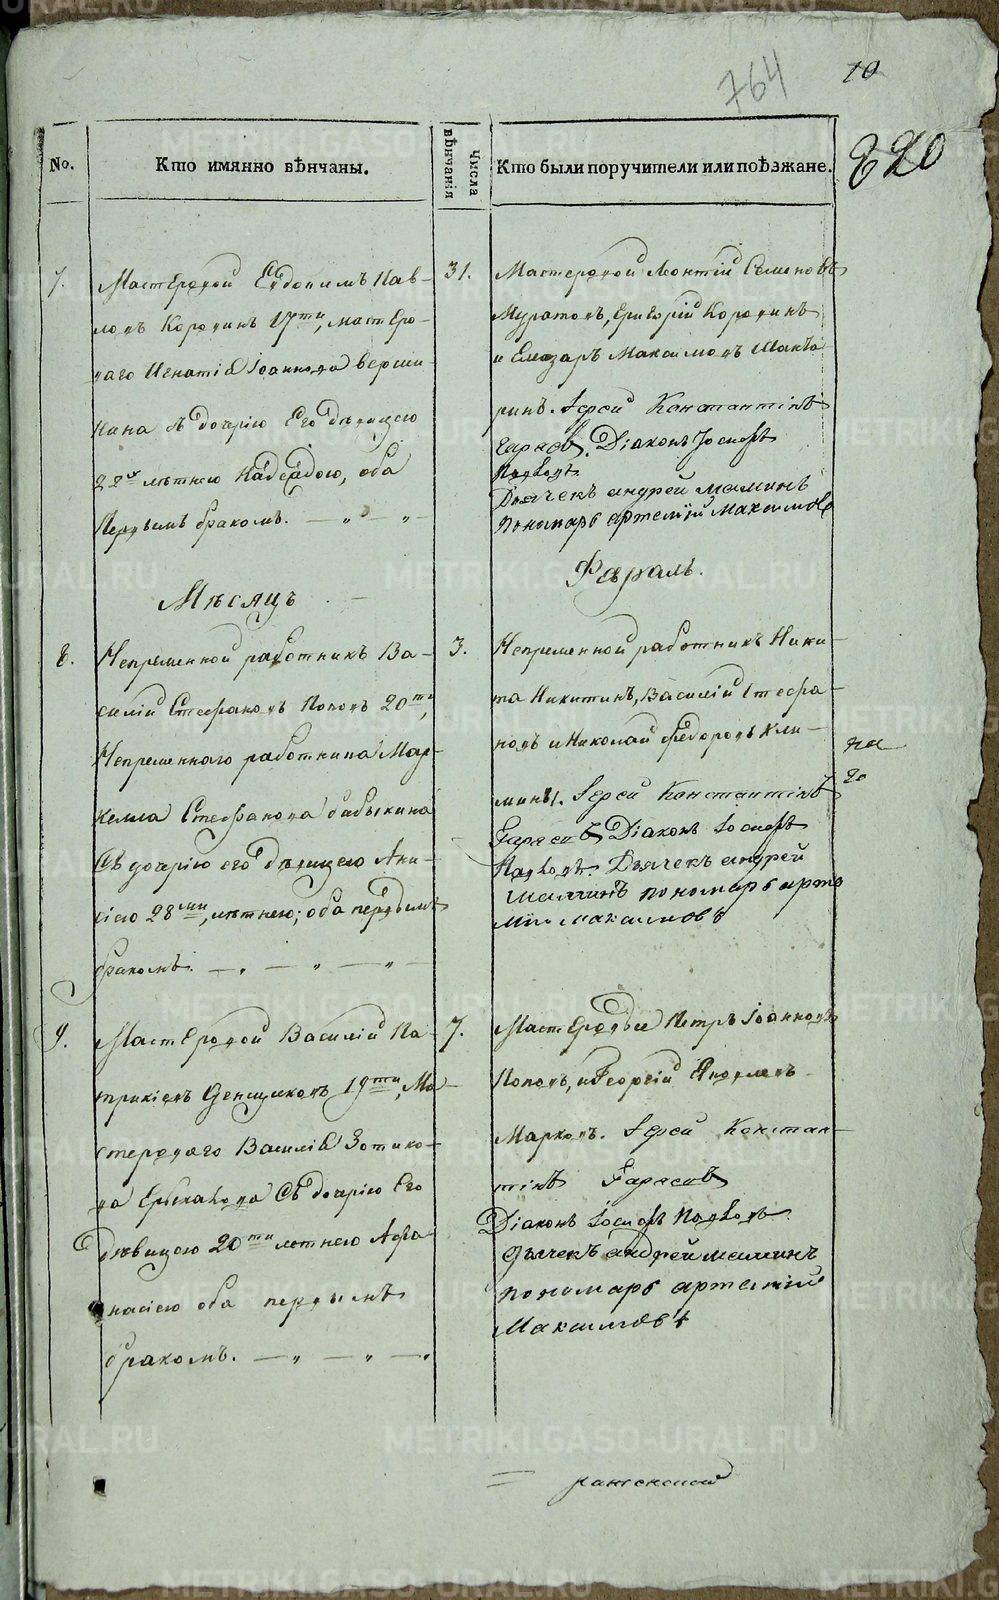 764
10
820
No.
Кто имянно вѣнчаны.
Числа вѣнчанія
Кто были поручители или поѣзжане.
7.
Мастеровой Евдокимъ Пав-
ловъ Коровинъ 17ти, мастеро-
ваго Игнатія Іоаннова верши-
нина съ дочерію Его дѣвицею
22х лѣтнею Надеждою, оба
Первымъ бракомъ. — „ — „ —
31.
Мастеровой Леонтій Семеновъ
Муратовъ, Григорій Коровинъ
и Елеазаръ Максимовъ
ринъ. Іерей Константинъ
Діаконъ Іосифъ
Дьячекъ андрей маминъ
Пономарь артемій максимовъ
Мѣсяцъ
Февраль.
8.
Непременной работникъ Ва-
силій Стефановъ Поповъ 20ти,
Непременнаго работника Мар-
келла Стефанова бабыкина
Съ дочерію его дѣвицею Ани-
сією 28ми, лѣтнею; оба первымъ
бракомъ. — „ — „ — „ —
3.
Непременной работникъ Ники-
та Никитинъ, Василій Стефа-
новъ и Николай Федоровъ Кли-
мины. Іерей Константинъ
Діаконъ Іосифъ
Дьячекъ андрей
маминъ пономарь арте
мій максимовъ
9.
Мастеровой Василій Па-
трикіевъ Денщиковъ 19ти, Ма
стероваго Василія Зотико-
ва Съ дочерію Его
дѣвицею 20ти лѣтнею Афа-
насією оба первымъ
бракомъ. — „ — „ — „
7.
Мастеровые Петръ Іоанновъ
Поповъ, и Георгій Яковлевъ
Марковъ. Іерей Констан-
тинъ
Діаконъ Іосифъ
дьячекъ андрей маминъ
пономарь артемій
Максимовъ
METRIKI.GASO-URAL.RU